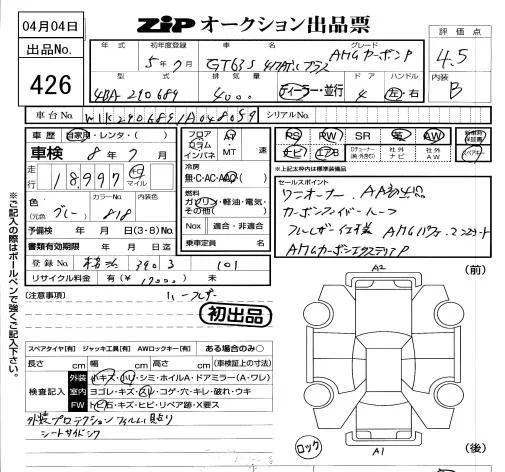 04月04日
出品No.
426
ZIP オークション出品票
評価点
4.5
内装
B
年式 初年度登録 車名 グレード
5年7月 GT63S 4マチックプラス AMGカーボンP
型式 排気量 ドア ハンドル
4BA-290689 4000 ディーラー・並行 4 左・右
車台No. W1K2906891A048059 シリアルNo.
車歴 自家用・レンタ・( )
車検 8年7月
走行 18,997 キロ マイル
色 (元色) グレー カラーNo. 818 内装色
予備検 年 月 日(3・8)No.
書類有効期限 年 月 日迄
登録No. 390 101
リサイクル料金 有(¥ ) 未
フロア コラム インパネ AT・MT 速
冷房 無・C・AC・AAC
燃料 ガソリン・軽油・電気・その他( )
Nox 適合・非適合
乗車定員 名
PS PW SR 革 AW 新車時保証書
ナビ エアB Dチューナー(純・外含む) 社外ナビ 社外AW スペアキー
※上記太枠は標準装備品
セールスポイント
ワンオーナー
カーボンファイバールーフ
AMGカーボンエクステリアP
[注意事項]
初出品
スペアタイヤ[有] ジャッキ工具[有] AWロックキー[有] ある場合のみ○
長さ cm 幅 cm 高さ cm (車検証上の寸法)
検査記入
外装 小キズ・凹・シミ・ホイルA・ドアミラー(A・ワレ)
室内 ヨゴレ・キズ・スレ・コゲ・穴・キレ・破れ・ウキ
FW トビ石・キズ・ヒビ・リペア跡・X要ス
外装プロテクションフィルム貼り
シートサイドシワ
A2 (前)
ロック
A1 (後)
※ご記入の際はボールペンで強くご記入下さい。